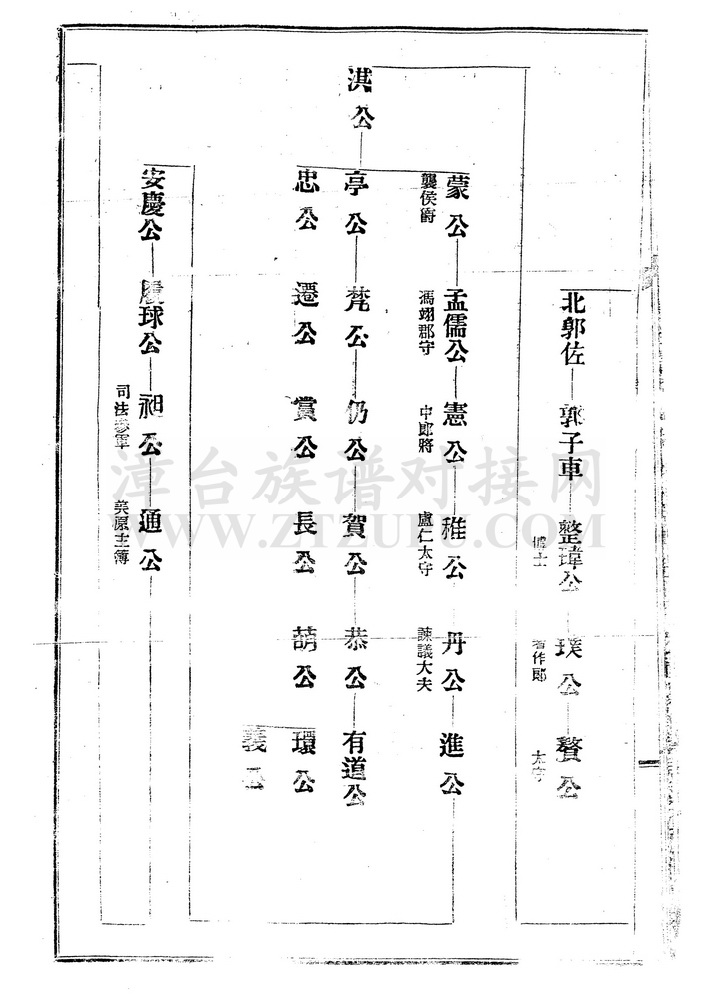 北郭佐
郭子車
整瑋公
博士
璞公
著作郎
贅公
太守
淇公
蒙公
襲侯爵
孟儒公
馮翊郡守
憲公
中郎將
稚公
盧仁太守
丹公
諫議大夫
進公
亭公
梵公
仍公
賀公
恭公
有道公
忠公
遷公
賞公
長公
公
環公
義公
安慶公
球公
昶公
司法參軍
通公
美原主簿
漳台族谱对接网
WWW.ZTZUPU.COM